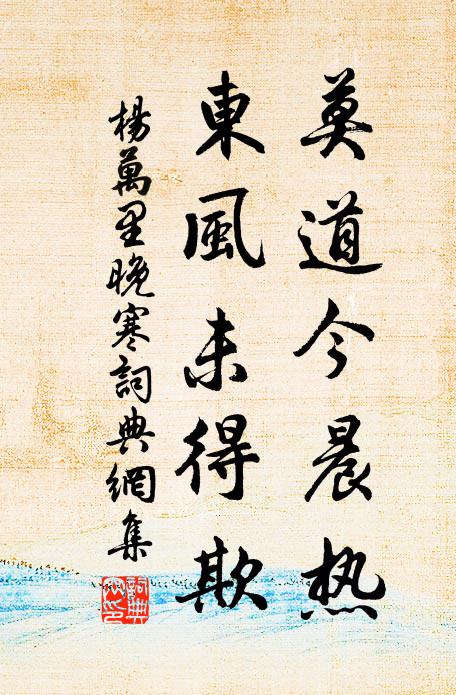 莫道今晨热
東風未得欺
楊萬里晚寒詞典網集